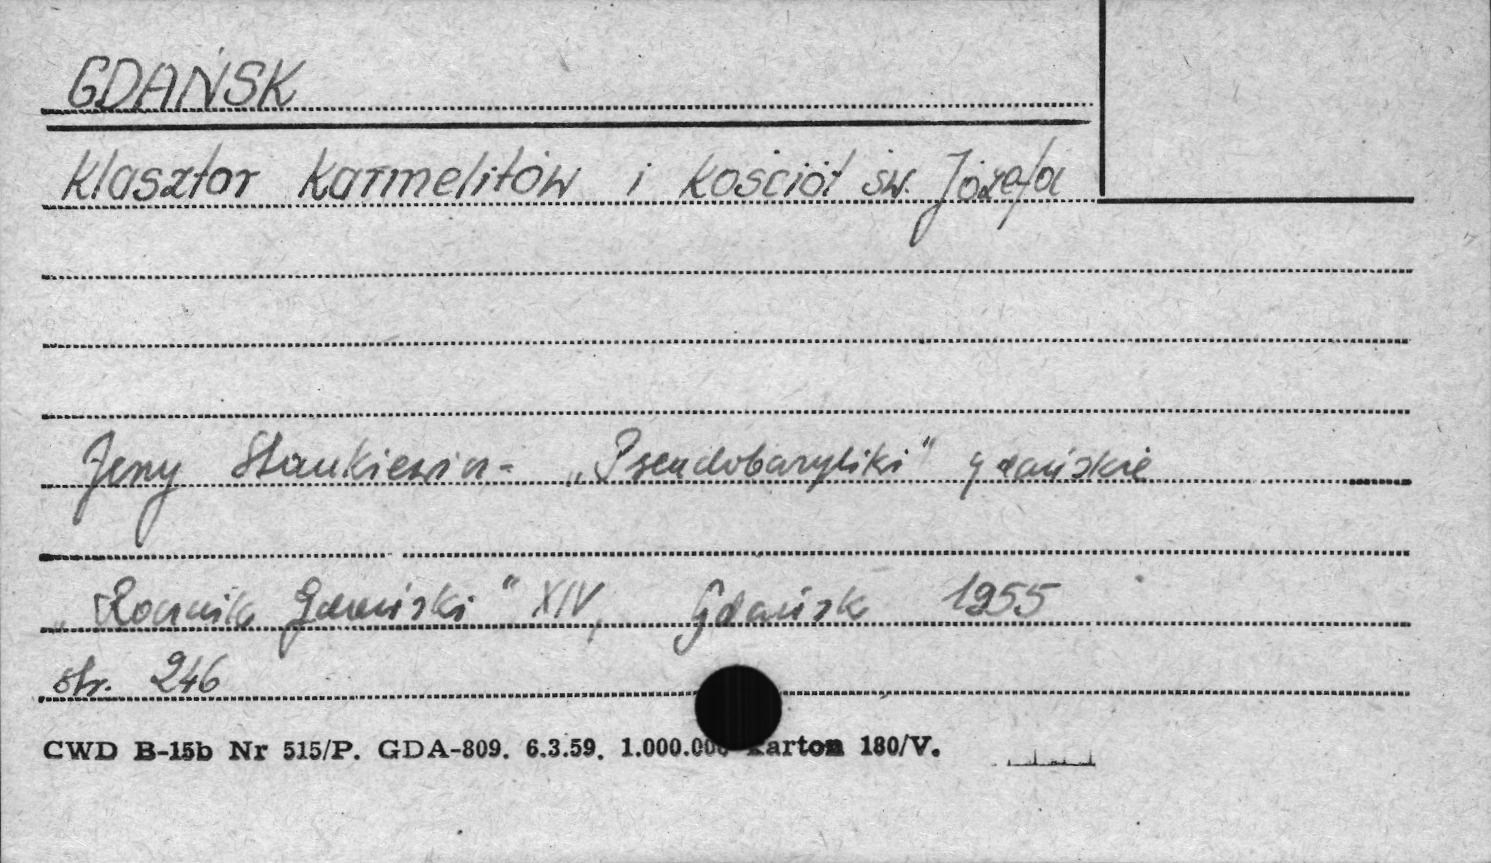 GDAŃSK
Klasztor Karmelitów i kościół św. Józefa
Jerzy Stankiewicz - „Pseudobazyliki" gdańskie
„Rocznik Gdański" XIV, Gdańsk 1955
str. 246
CWD B-15b Nr 515/P. GDA-809. 6.3.59. 1.000.000 Karton 180/V.